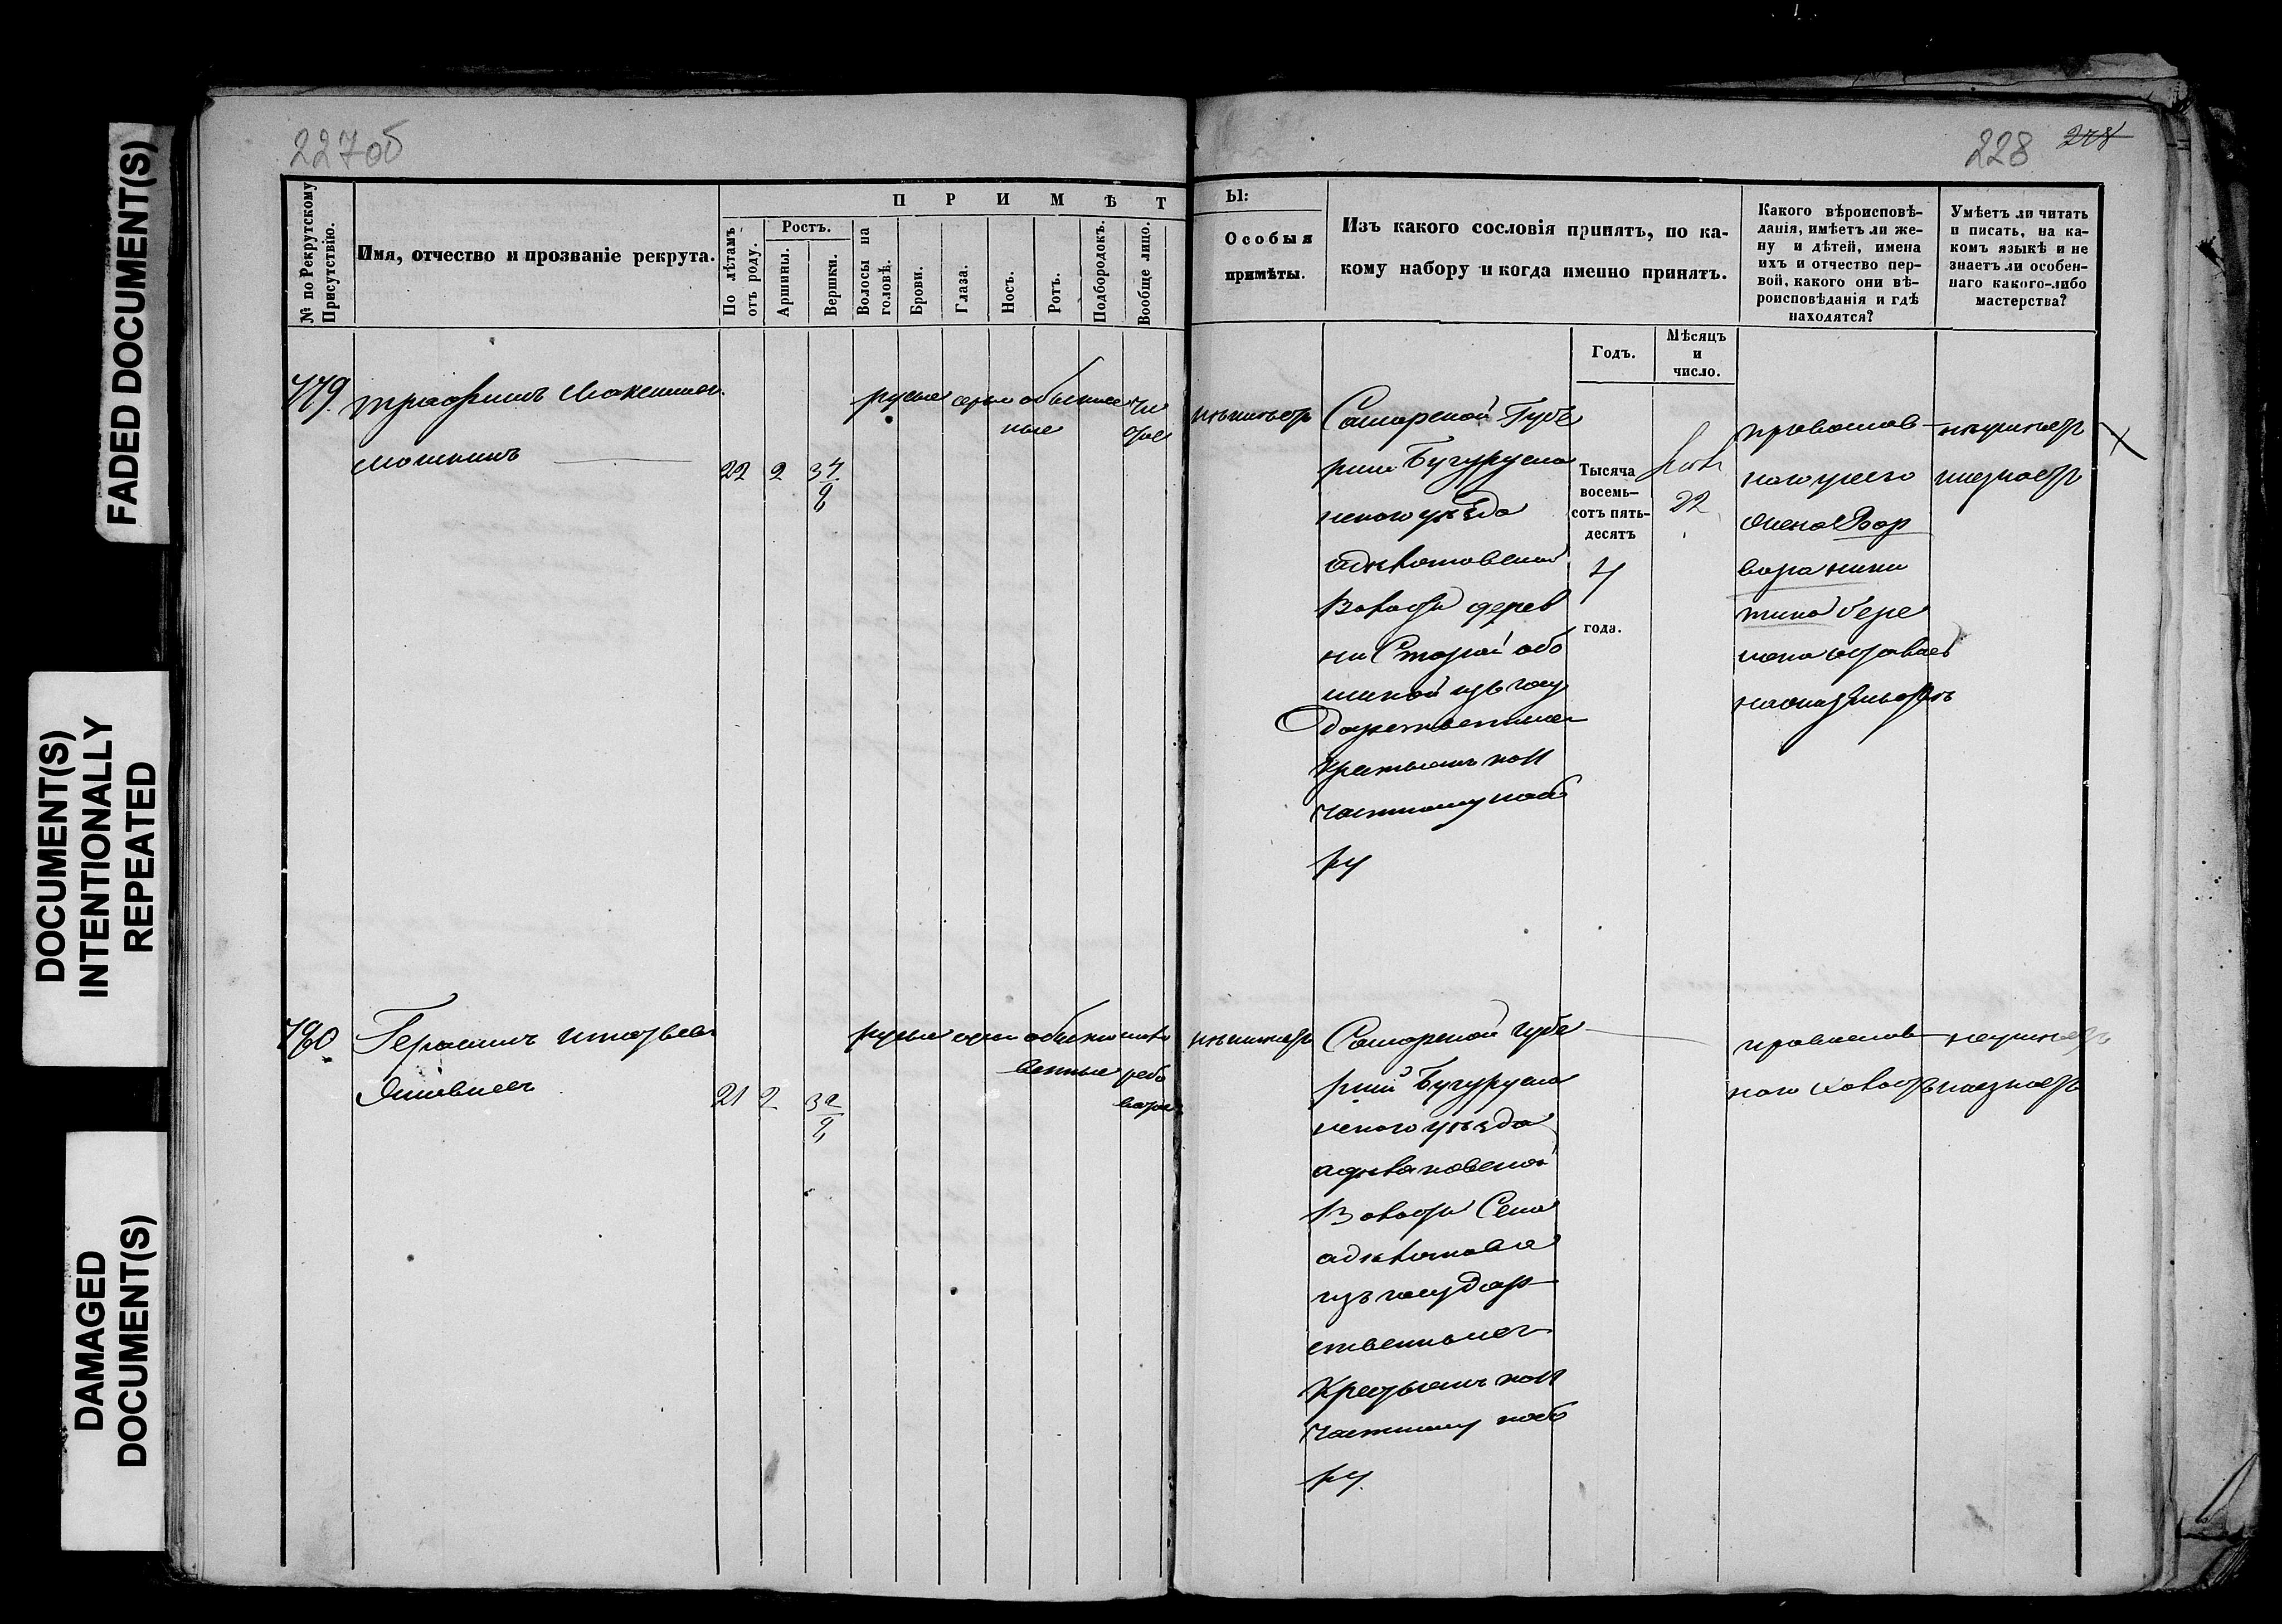 FADED DOCUMENT(S)
DOCUMENT(S)
INTENTIONALLY
REPEATED
DAMAGED
DOCUMENT(S)
227об
228 228
№ по Рекрутскому
Присутствію.
Имя, отчество и прозваніе рекрута.
П Р И М Ѣ Т
По лѣтамъ
отъ роду.
Ростъ.
Аршины.
Вершки.
Волосы на
головѣ.
Брови.
Глаза.
Носъ.
Ротъ.
Подбородокъ.
Вообще лицо.
Ы:
Особыя
примѣты.
Изъ какого сословія принятъ, по ка-
кому набору и когда именно принятъ.
Какого вѣроисповѣ-
данія, имѣетъ ли же-
ну и дѣтей, имена
ихъ и отчество пер-
вой, какого они вѣ-
роисповѣданія и гдѣ
находятся?
Умѣетъ ли читать
и писать, на ка-
комъ языкѣ и не
знаетъ ли особен-
наго какого-либо
мастерства?
Годъ.
Мѣсяцъ
и
число.
779. Трафимъ Максимов
Мошкинъ
22 2 3 4/8
русые серы обыкновен
ные
чи
стое
неимѣетъ
Самарской Губе
рніи Бугурусла
нскаго уѣзда
Волости дерев
ни Старой
изъ госу
дарственных
крестьянъ по 11
частному набо
ру
Тысяча
восемь-
сотъ пять-
десятъ
4
года.
22
православ
наго у него
жена Вар
вара Ники
тина бере
неумѣетъ
незнаетъ
780 Герасимъ Матвеев
21 2 3 2/8
русые серы обыкно
венные
ребо
ватое
неимѣетъ
Самарской губе
рніи Бугурусла
нскаго уѣзда
Волости Села
изъ государ
ственных
крестьянъ по 11
частному набо
ру.
православ
наго холостъ
неумѣетъ
незнаетъ